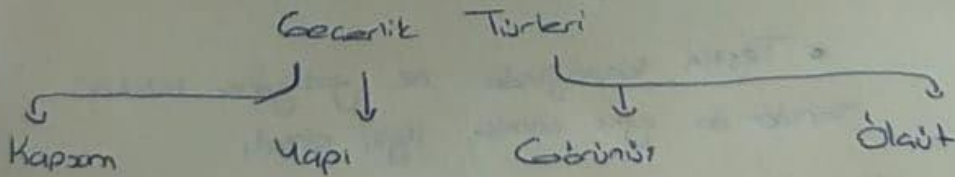 Geçerlik Türleri
Kapsam Yapı Görünüş Ölçüt